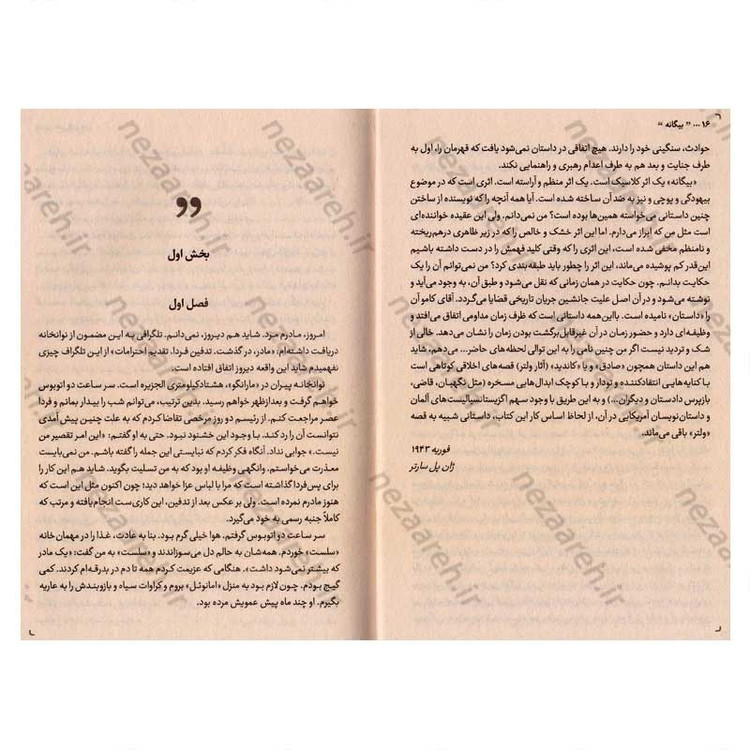 ۱۶ ... " بیگانه "
حوادث، سنگینی خود را دارند. هیچ اتفاقی در داستان نمی‌شود یافت که قهرمان را، اول به
طرف جنایت و بعد هم به طرف اعدام رهبری و راهنمایی نکند.
«بیگانه» یک اثر کلاسیک است. یک اثر منظم و آراسته است. اثری است که در موضوع
بیهودگی و پوچی و نیز به ضد آن ساخته شده است. آیا همه آنچه را که نویسنده از ساختن
چنین داستانی می‌خواسته همین‌ها بوده است؟ من نمی‌دانم. ولی این عقیده خواننده‌ای
است مثل من که ابراز می‌دارم. اما این اثر خشک و خالص را که در زیر ظاهری درهم‌ریخته
و نامنظم مخفی شده است، این اثری را که وقتی کلید فهمش را در دست داشته باشیم
این‌قدر کم پوشیده می‌ماند، این اثر را چطور باید طبقه‌بندی کرد؟ من نمی‌توانم آن را یک
حکایت بدانم. چون حکایت در همان زمانی که نقل می‌شود و طبق آن، به وجود می‌آید و
نوشته می‌شود و در آن اصل علیت جانشین جریان تاریخی قضایا می‌گردد. آقای کامو آن
را «داستان» نامیده است. بااین‌همه داستانی است که ظرف زمان مداومی اتفاق می‌افتد و
وظیفه‌ای دارد و حضور زمان در آن غیرقابل‌برگشت بودن زمان را نشان می‌دهد. خالی از
شک و تردید نیست اگر من چنین نامی را به این توالی لحظه‌های حاضر... می‌دهم، شاید
هم این داستان همچون «صادق» و یا «کاندید» (آثار ولتر) قصه‌های اخلاقی کوتاهی است
با کنایه‌هایی انتقادکننده و نودار و با کوچک ابدال‌هایی مسخره (مثل نگهبان، قاضی،
بازپرس دادستان و دیگران...) و به این طریق با وجود سهم اگزیستانسیالیست‌های آلمان
و داستان‌نویسان آمریکایی در آن، از لحاظ اساس کار این کتاب، داستانی شبیه به قصه
«ولتر» باقی می‌ماند.
فوریه ۱۹۴۳
ژان پل سارتر
بخش اول
فصل اول
امروز، مادرم مرد. شاید هم دیروز، نمی‌دانم. تلگرافی به این مضمون از نوانخانه
دریافت داشته‌ام: «مادر، درگذشت. تدفین فردا. تقدیم احترامات» از این تلگراف چیزی
نفهمیدم شاید این واقعه دیروز اتفاق افتاده است.
نوانخانه پیران در «مارانگو»، هشتادکیلومتری الجزیره است. سر ساعت دو اتوبوس
خواهم گرفت و بعدازظهر خواهم رسید. بدین ترتیب، می‌توانم شب را بیدار بمانم و فردا
عصر مراجعت کنم. از رئیسم دو روز مرخصی تقاضا کردم که به علت چنین پیش آمدی
نتوانست آن را رد کند. با وجود این خشنود نبود. حتی به او گفتم: «این امر تقصیر من
نیست.» جوابی نداد. آنگاه فکر کردم که نبایستی این جمله را گفته باشم. من نمی‌بایست
معذرت می‌خواستم. وانگهی وظیفه او بود که به من تسلیت بگوید. شاید هم این کار را
برای پس‌فردا گذاشته است که مرا با لباس عزا خواهد دید؛ چون اکنون مثل این است که
هنوز مادرم نمرده است. ولی بر عکس بعد از تدفین، این کاری‌ست انجام‌یافته و مرتب که
کاملاً جنبه رسمی به خود می‌گیرد.
سر ساعت دو اتوبوس گرفتم. هوا خیلی گرم بود. بنا به عادت، غذا را در مهمان خانه
«سلست» خوردم. همه‌شان به حالم دل می‌سوزاندند و «سلست» به من گفت: «یک مادر
که بیشتر نمی‌شود داشت». هنگامی که عزیمت کردم همه تا دم در بدرقه‌ام کردند. کمی
گیج بودم. چون لازم بود به منزل «امانوئل» بروم و کراوات سیاه و بازوبندش را به عاریه
بگیرم. او چند ماه پیش عمویش مرده بود.
nezaareh.ir
nezaareh.ir
nezaareh.ir
nezaareh.ir
nezaareh.ir
nezaareh.ir
nezaareh.ir
nezaareh.ir